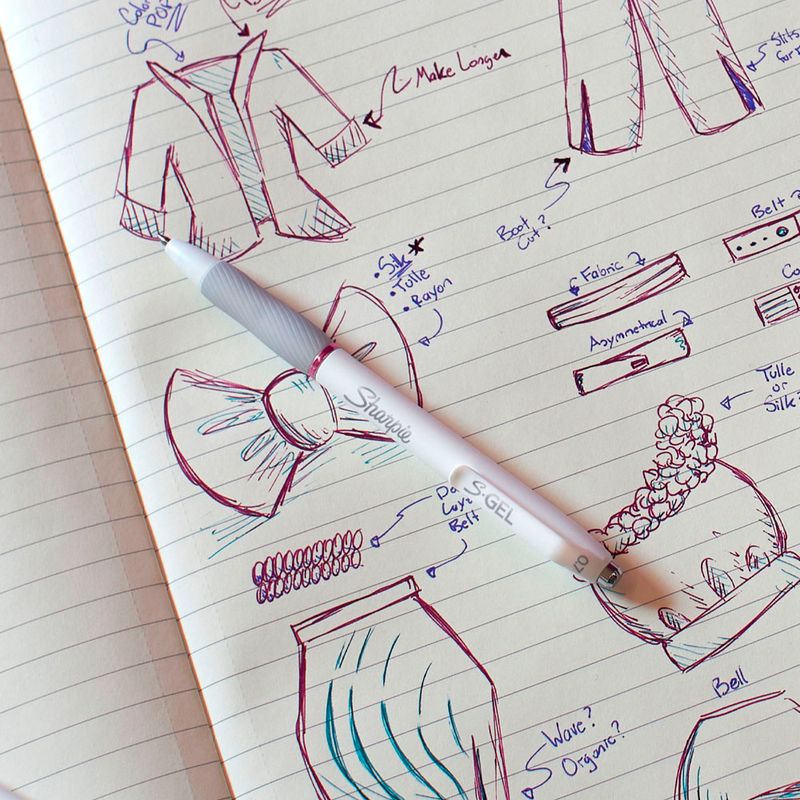 Color
POP
Make Longer
Slits
for
Boot
Cut?
Belt ?
• Silk *
• Tulle
• Rayon
Fabric
Asymmetrical
Tulle
or
Silk?
Sharpie
S·GEL
0.7
Belt
Wave?
Organic?
Bell